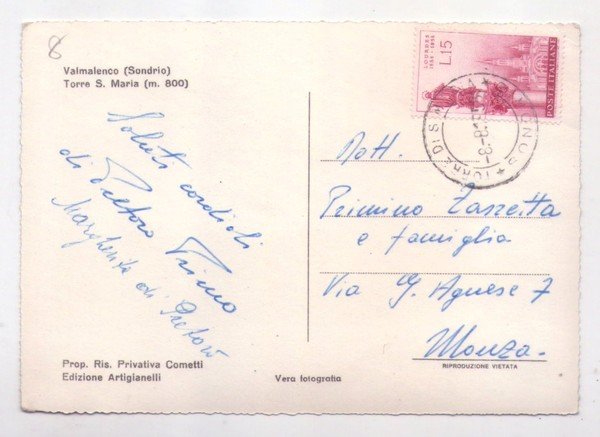 8
Valmalenco (Sondrio)
Torre S. Maria (m. 800)
Saluti cordiali
di Pretoro Primo
Margherita di Pretoro
Prop. Ris. Privativa Cometti
Edizione Artigianelli
Vera fotografia
LOURDES
1858-1958
L.15
POSTE ITALIANE
TORRE DI S. M
Dott.
Primino Zanzetta
e famiglia
Via G. Agnese 7
Monza.
RIPRODUZIONE VIETATA